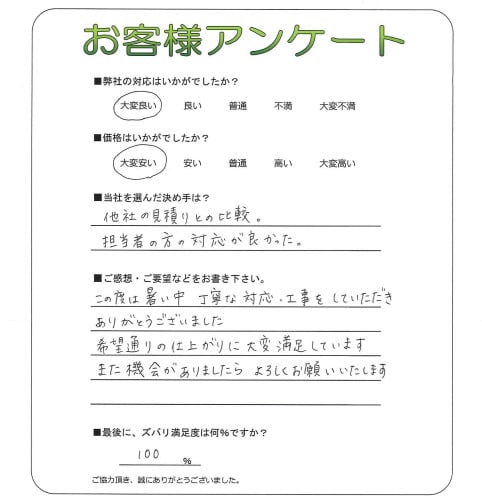 お客様アンケート
■弊社の対応はいかがでしたか？
大変良い 良い 普通 不満 大変不満
■価格はいかがでしたか？
大変安い 安い 普通 高い 大変高い
■当社を選んだ決め手は？
他社の見積りとの比較。
担当者の方の対応が良かった。
■ご感想・ご要望などをお書き下さい。
この度は暑い中 丁寧な対応・工事をしていただき
ありがとうございました
希望通りの仕上がりに大変満足しています
また機会がありましたら よろしくお願いいたします
■最後に、ズバリ満足度は何%ですか？
100 %
ご協力頂き、誠にありがとうございました。